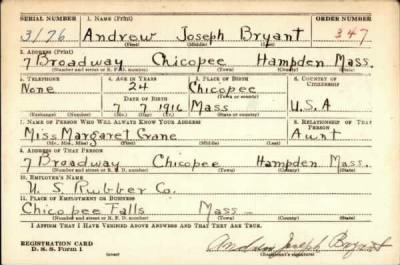 SERIAL NUMBER 1. NAME (Print) ORDER NUMBER
3176 Andrew Joseph Bryant 347
(First) (Middle) (Last)
2. ADDRESS (Print)
7 Broadway Chicopee Hampden Mass.
(Number and street or R. F. D. number) (Town) (County) (State)
3. TELEPHONE 4. AGE IN YEARS 5. PLACE OF BIRTH 6. COUNTRY OF CITIZENSHIP
None 24 Chicopee
DATE OF BIRTH (Town or county)
7 7 1916 Mass U.S.A
(Exchange) (Number) (Mo.) (Day) (Yr.) (State or country)
7. NAME OF PERSON WHO WILL ALWAYS KNOW YOUR ADDRESS 8. RELATIONSHIP OF THAT PERSON
Miss Margaret Crane Aunt
(Mr., Mrs., Miss) (First) (Middle) (Last)
9. ADDRESS OF THAT PERSON
7 Broadway Chicopee Hampden Mass.
(Number and street or R. F. D. number) (Town) (County) (State)
10. EMPLOYER'S NAME
U. S. Rubber Co.
11. PLACE OF EMPLOYMENT OR BUSINESS
Chicopee Falls Mass
(Number and street or R. F. D. number) (Town) (County) (State)
I AFFIRM THAT I HAVE VERIFIED ABOVE ANSWERS AND THAT THEY ARE TRUE.
REGISTRATION CARD
D. S. S. Form 1 Andrew Joseph Bryant
(Registrant's signature)